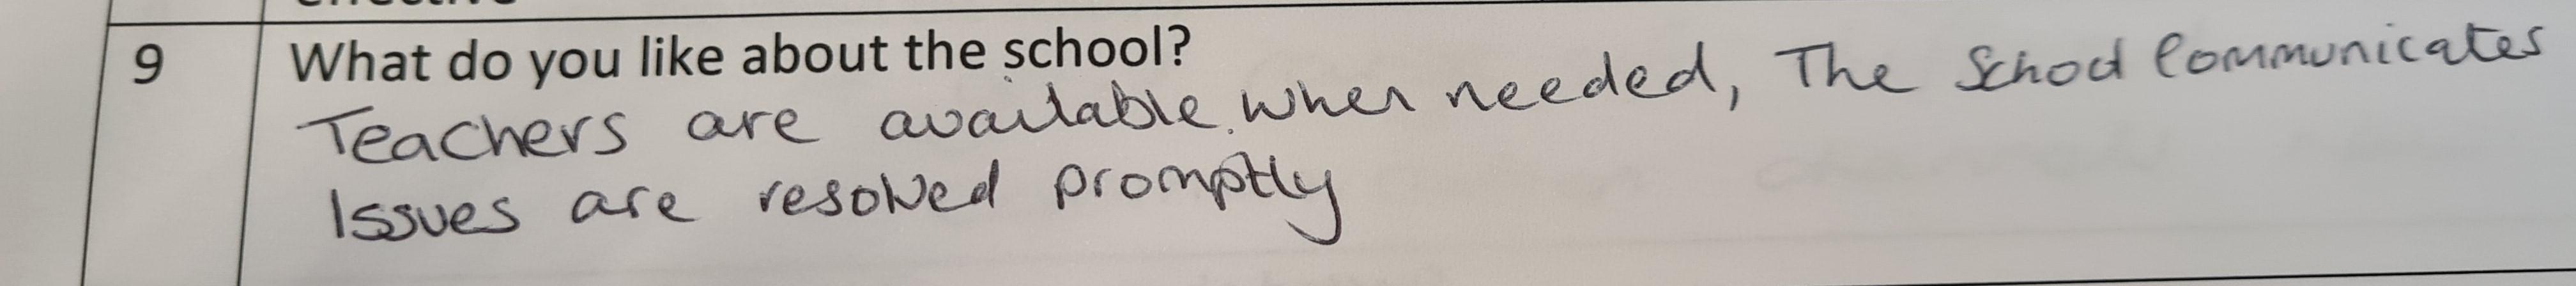 9 What do you like about the school?
Teachers are available when needed, The School Communicates
Issues are resolved promptly